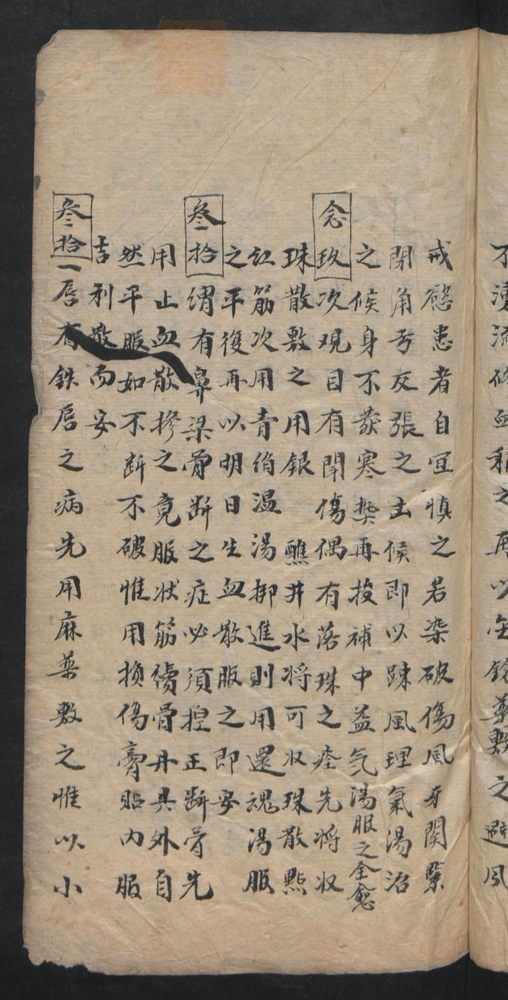 不湧流余血和之再以金鎗藥敷之避风
戒慾患者自宜慎之若染破傷风牙関緊
閉角弓反張之土候即以踈風理氣湯治
之候身不發寒熱再投補中益氣湯服之全愈
念玖次观目有閗傷偶有落珠之症先將収
珠散敷之用銀蘸井水將可収珠散點
紅筋次用青伯温湯抑進則用還魂湯服
之平復再以明日生血散服之即安
叁拾緝有鼻梁骨断之症必須捏正断骨先
用止血散摻之竟服状筋續骨丹具外自
然平服如不断不破惟用損傷膏貼内服
吉利散而安
叁拾一唇有鉄唇之病先用麻藥敷之惟以小